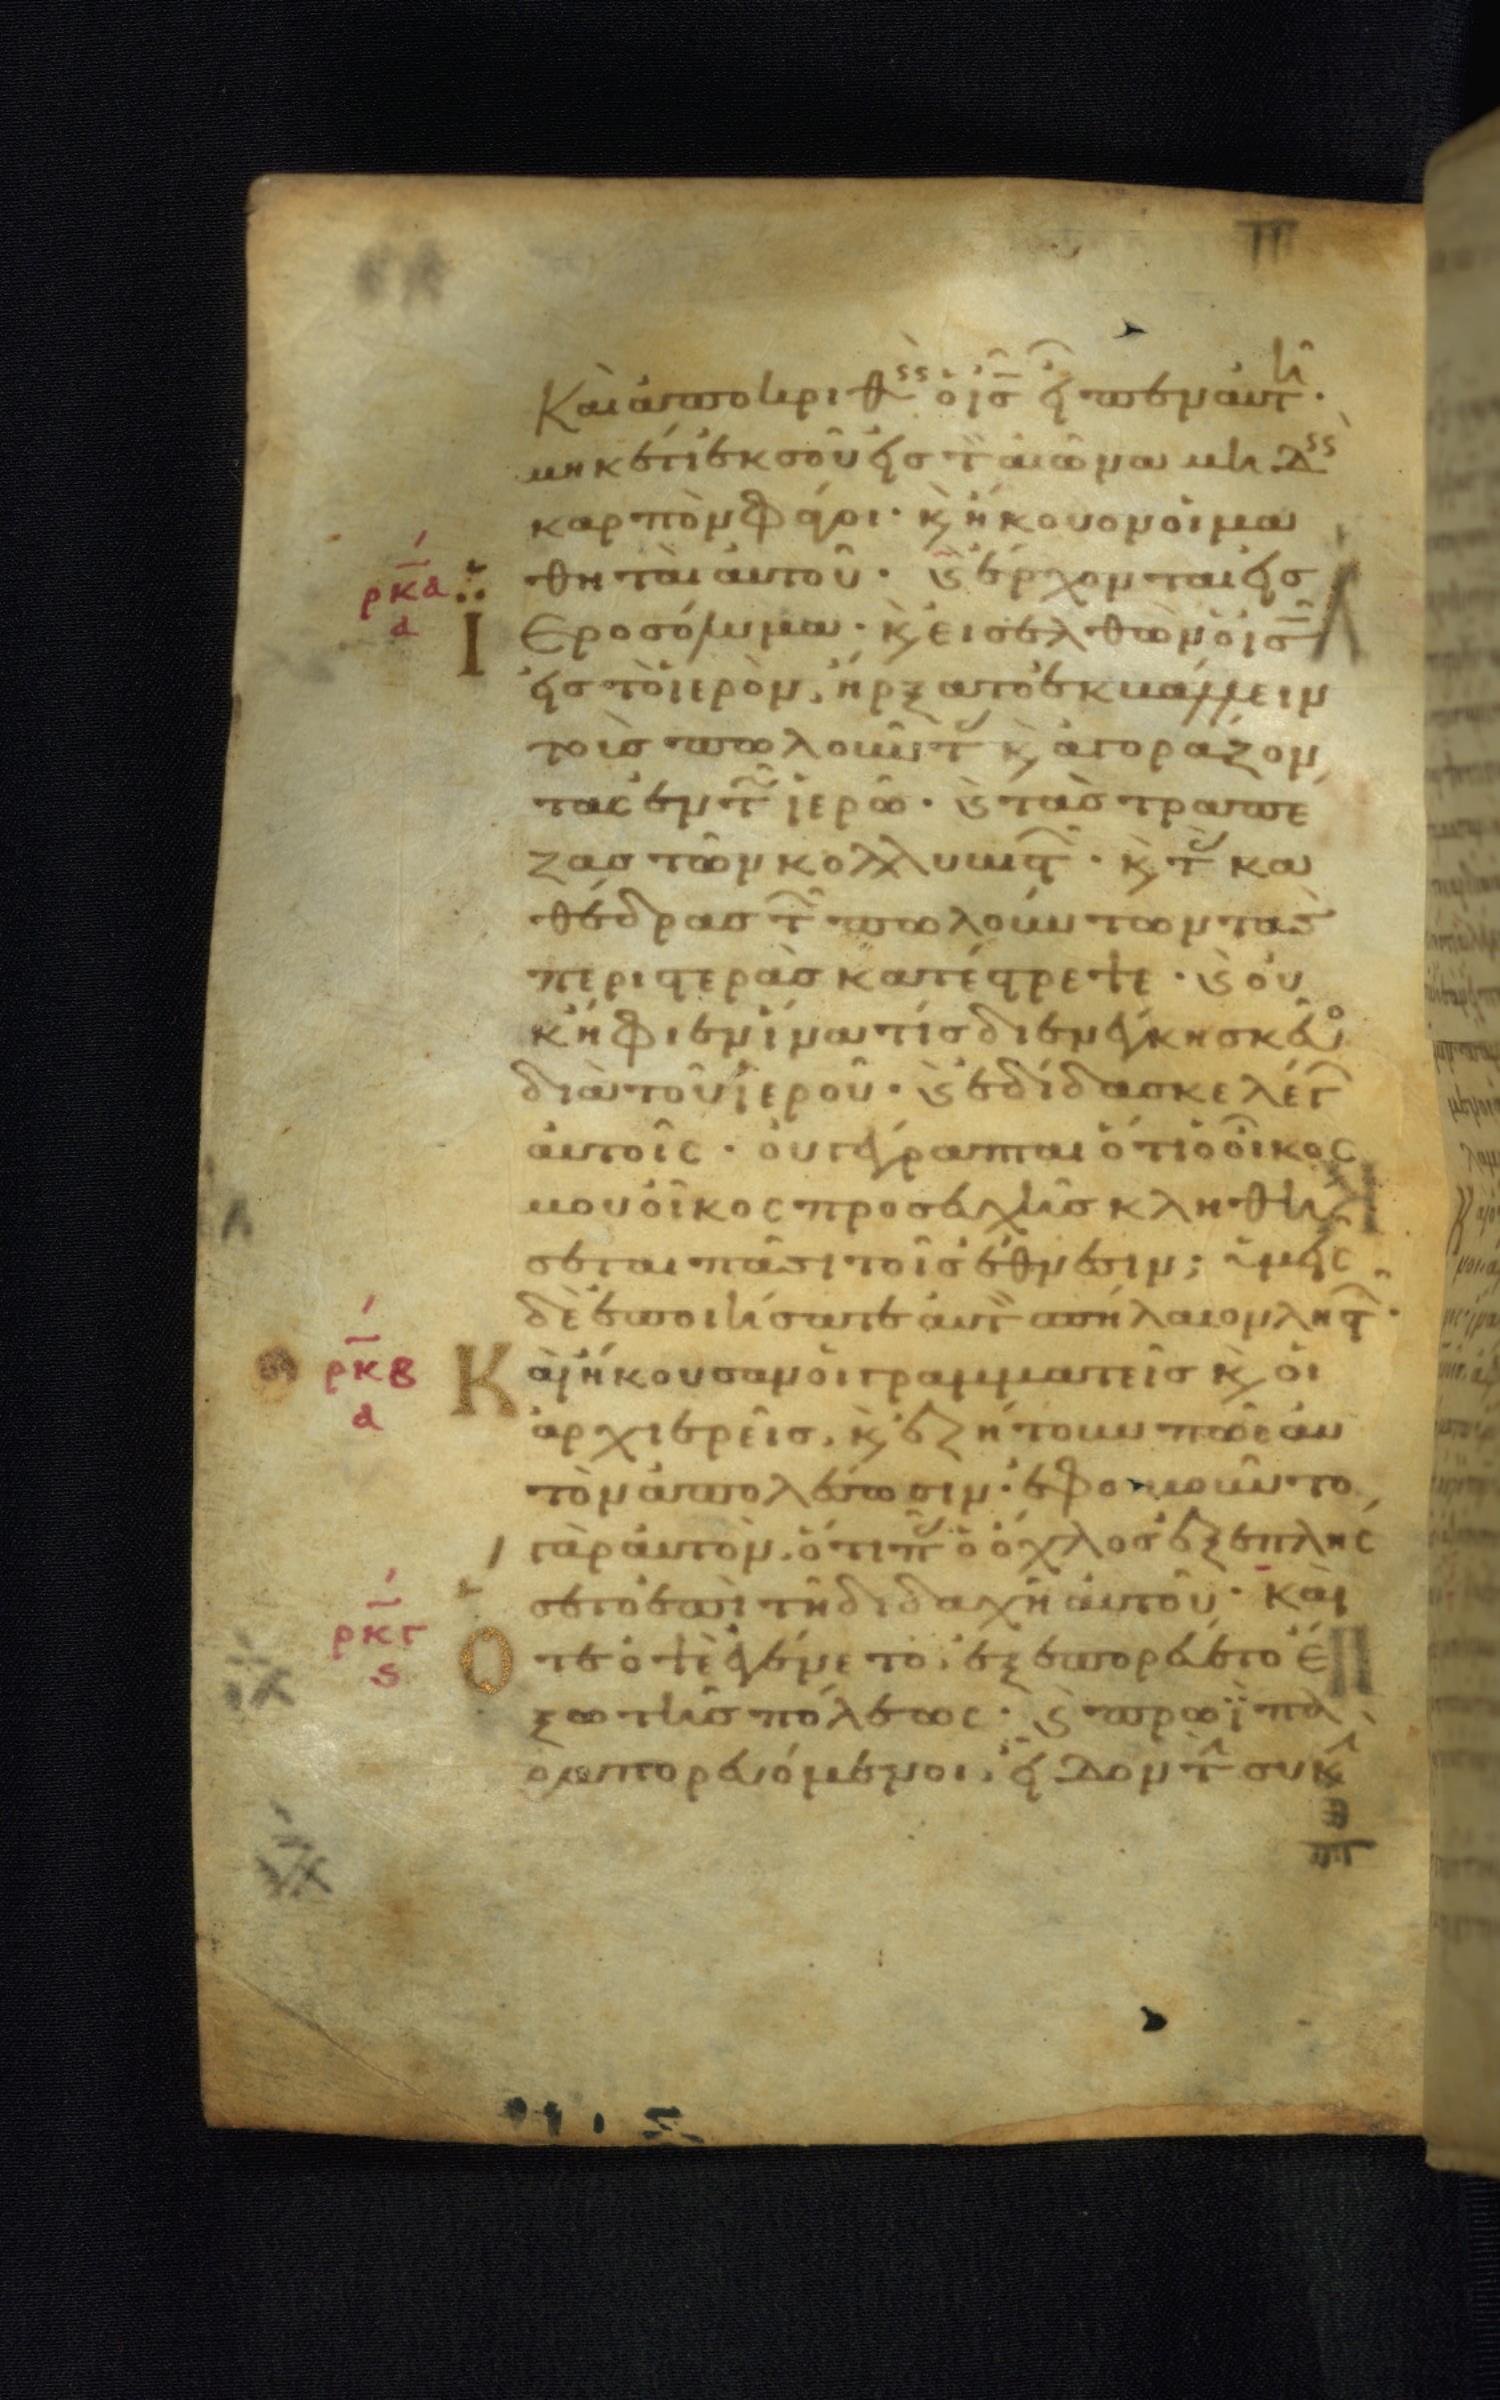 Και αποκριθ ο ις ειπεν αυτ η·
μηκετι εκ σοῦ εις τ αιωνα μηδ
καρπὸν φάγοι· κ ἤκουον οἱ μα
θηται αυτοῦ· κ ἔρχονται εἰς
ρκα α
Ι εροσόλυμα· κ εισελθων ο ις
εις τὸ ιερὸν, ἤρξατο εκβάλλειν
τοις πωλοῦντ κ αγοράζον
τας εν τ ιερῶ· κ τὰς τραπε
ζας τῶν κολλυβιστ· κ τ κα
θέδρας τ πωλούντων τὰς
περιστερὰς κατέστρεψε· κ ου
κ ἤφιεν ίνα τίς διενέγκη σκεύο
διὰ τοῦ ιεροῦ· κ εδίδασκε λέγ
αυτοῖς· ου γέγραπται ότι ο οῖκος
μου οῖκος προσευχῆς κληθή
σεται πᾶσι τοῖς έθνεσιν; υμεῖς
δὲ εποιήσατε αυτ σπήλαιον ληστ·
ρκβ α
Κ αὶ ήκουσαν οι γραμματεῖς κ οι
αρχιερεῖς, κ εζήτουν πῶς αυ
τὸν απολέσωσιν· εφοβοῦντο
γὰρ αυτὸν, ότι π ο όχλος εξεπλής
σετο επὶ τῆ διδαχῆ αυτοῦ· Και
ρκγ ς
Ο τε οψὲ εγένετο, εξεπορεύετο έ
ξω τῆς πόλεως· κ πρωῒ πα
ραπορευόμενοι, εῖδον τ συκ